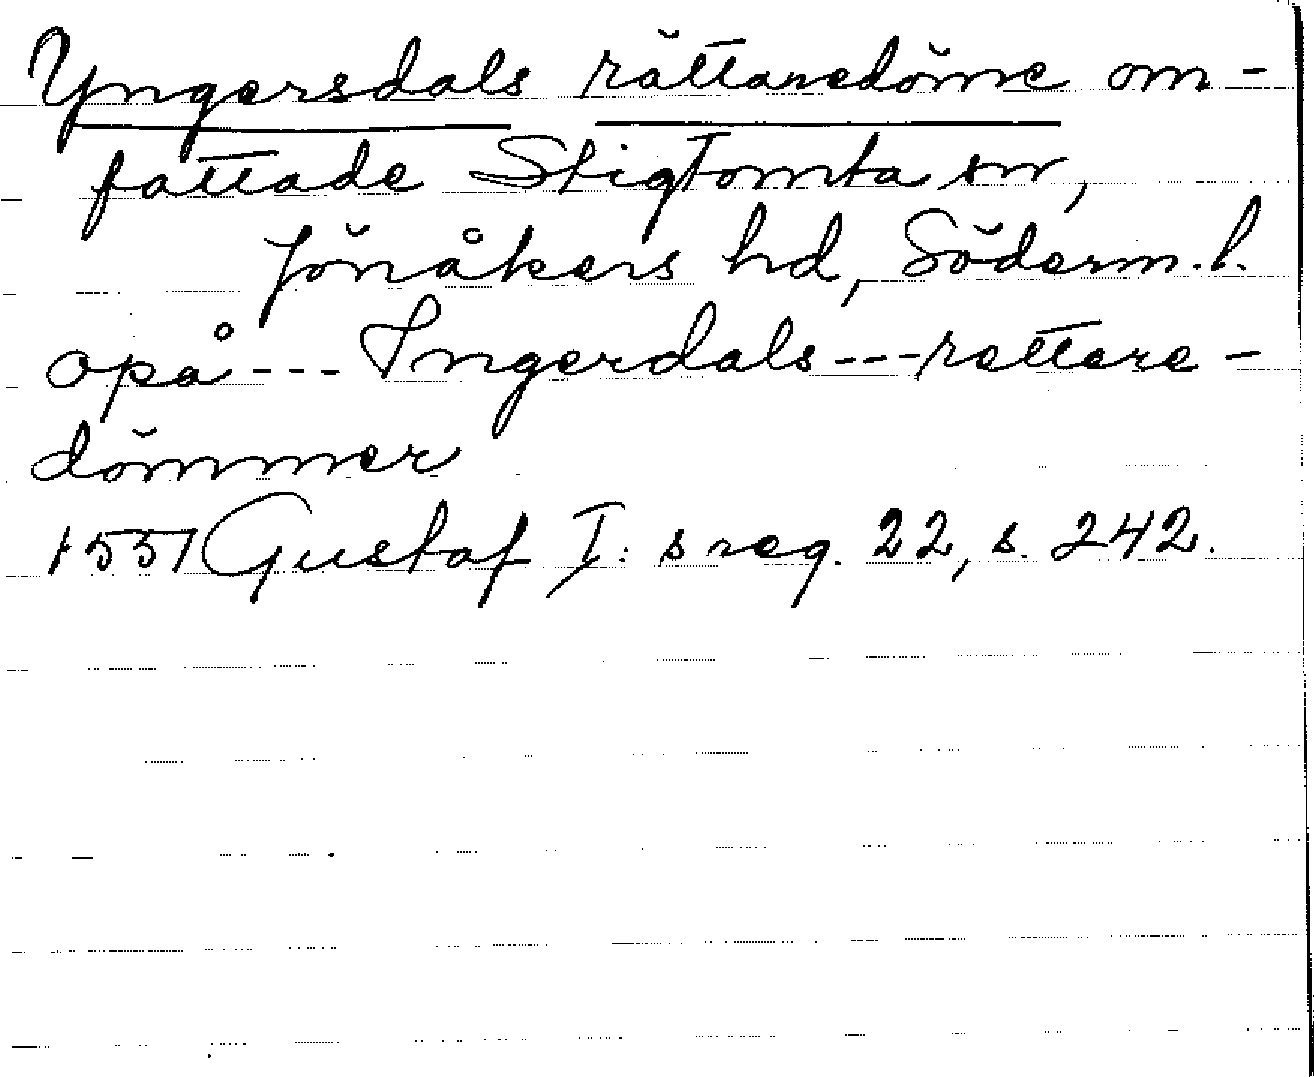 Yngersdals rättaredöme om-
fattade Stigtomta sn,
Jönåkers hd, Söderm. l.
opå --- Ingerdals --- rettere-
dömmer
1551 Gustaf I:s reg. 22, s. 242.